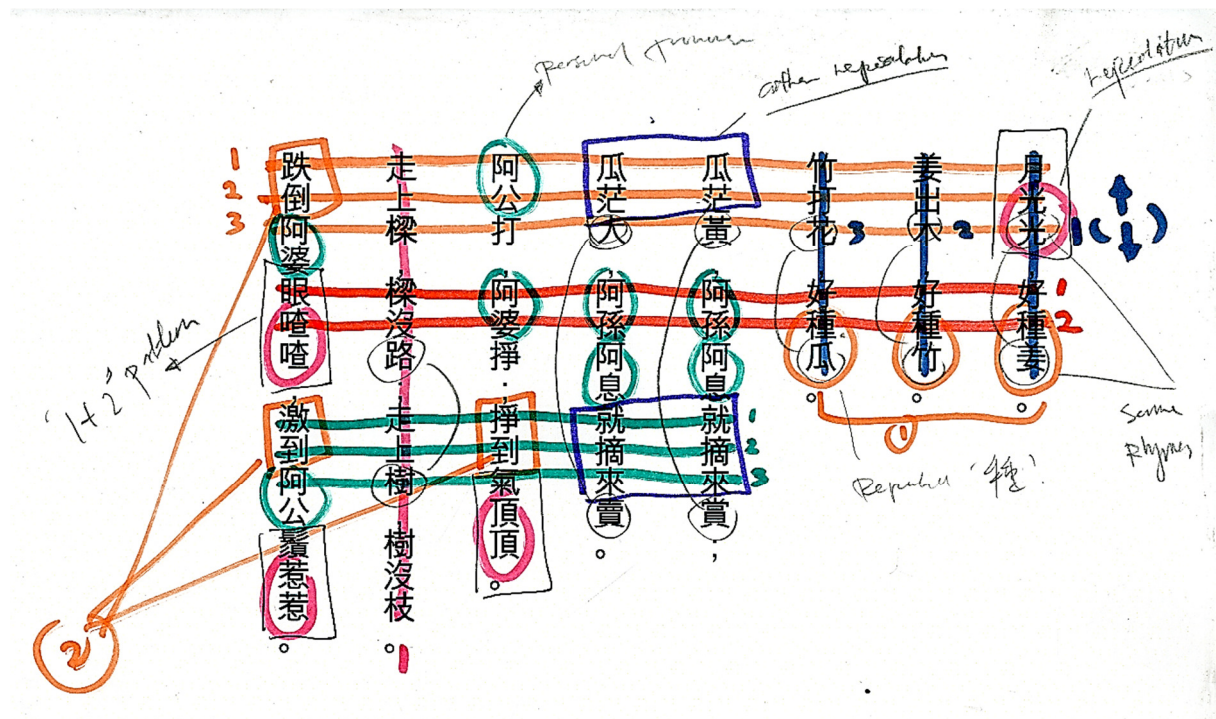 月光光,好種姜。
姜出木,好種竹。
竹打花,好種瓜。
瓜茫黃,阿孫阿息就摘來賞;
瓜茫大,阿孫阿息就摘來賣。
阿公打,阿婆掙.掙到氣頂頂。
走上樑,樑沒路,走上樹,樹沒枝。
跌倒阿婆眼喳喳,激到阿公鬚惹惹。
Personal pronoun
other repetition
repetition
Same
Rhymes
Repeated '種'
'1+2' problem
1
2
3
3
2
1(↕)
1
2
1
2
3
1
①
②